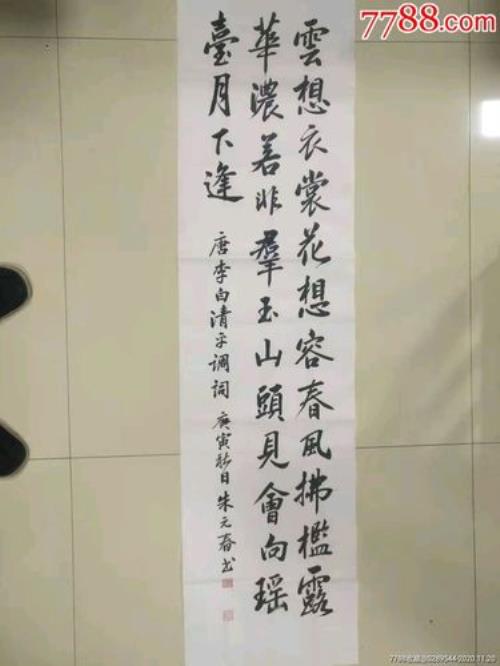 7788.com
雲想衣裳花想容春風拂檻露
華濃若非羣玉山頭見會向瑶
臺月下逢
唐李白清平调词 庚寅秋日朱元春书
7788收藏@0289544 2020.11.20